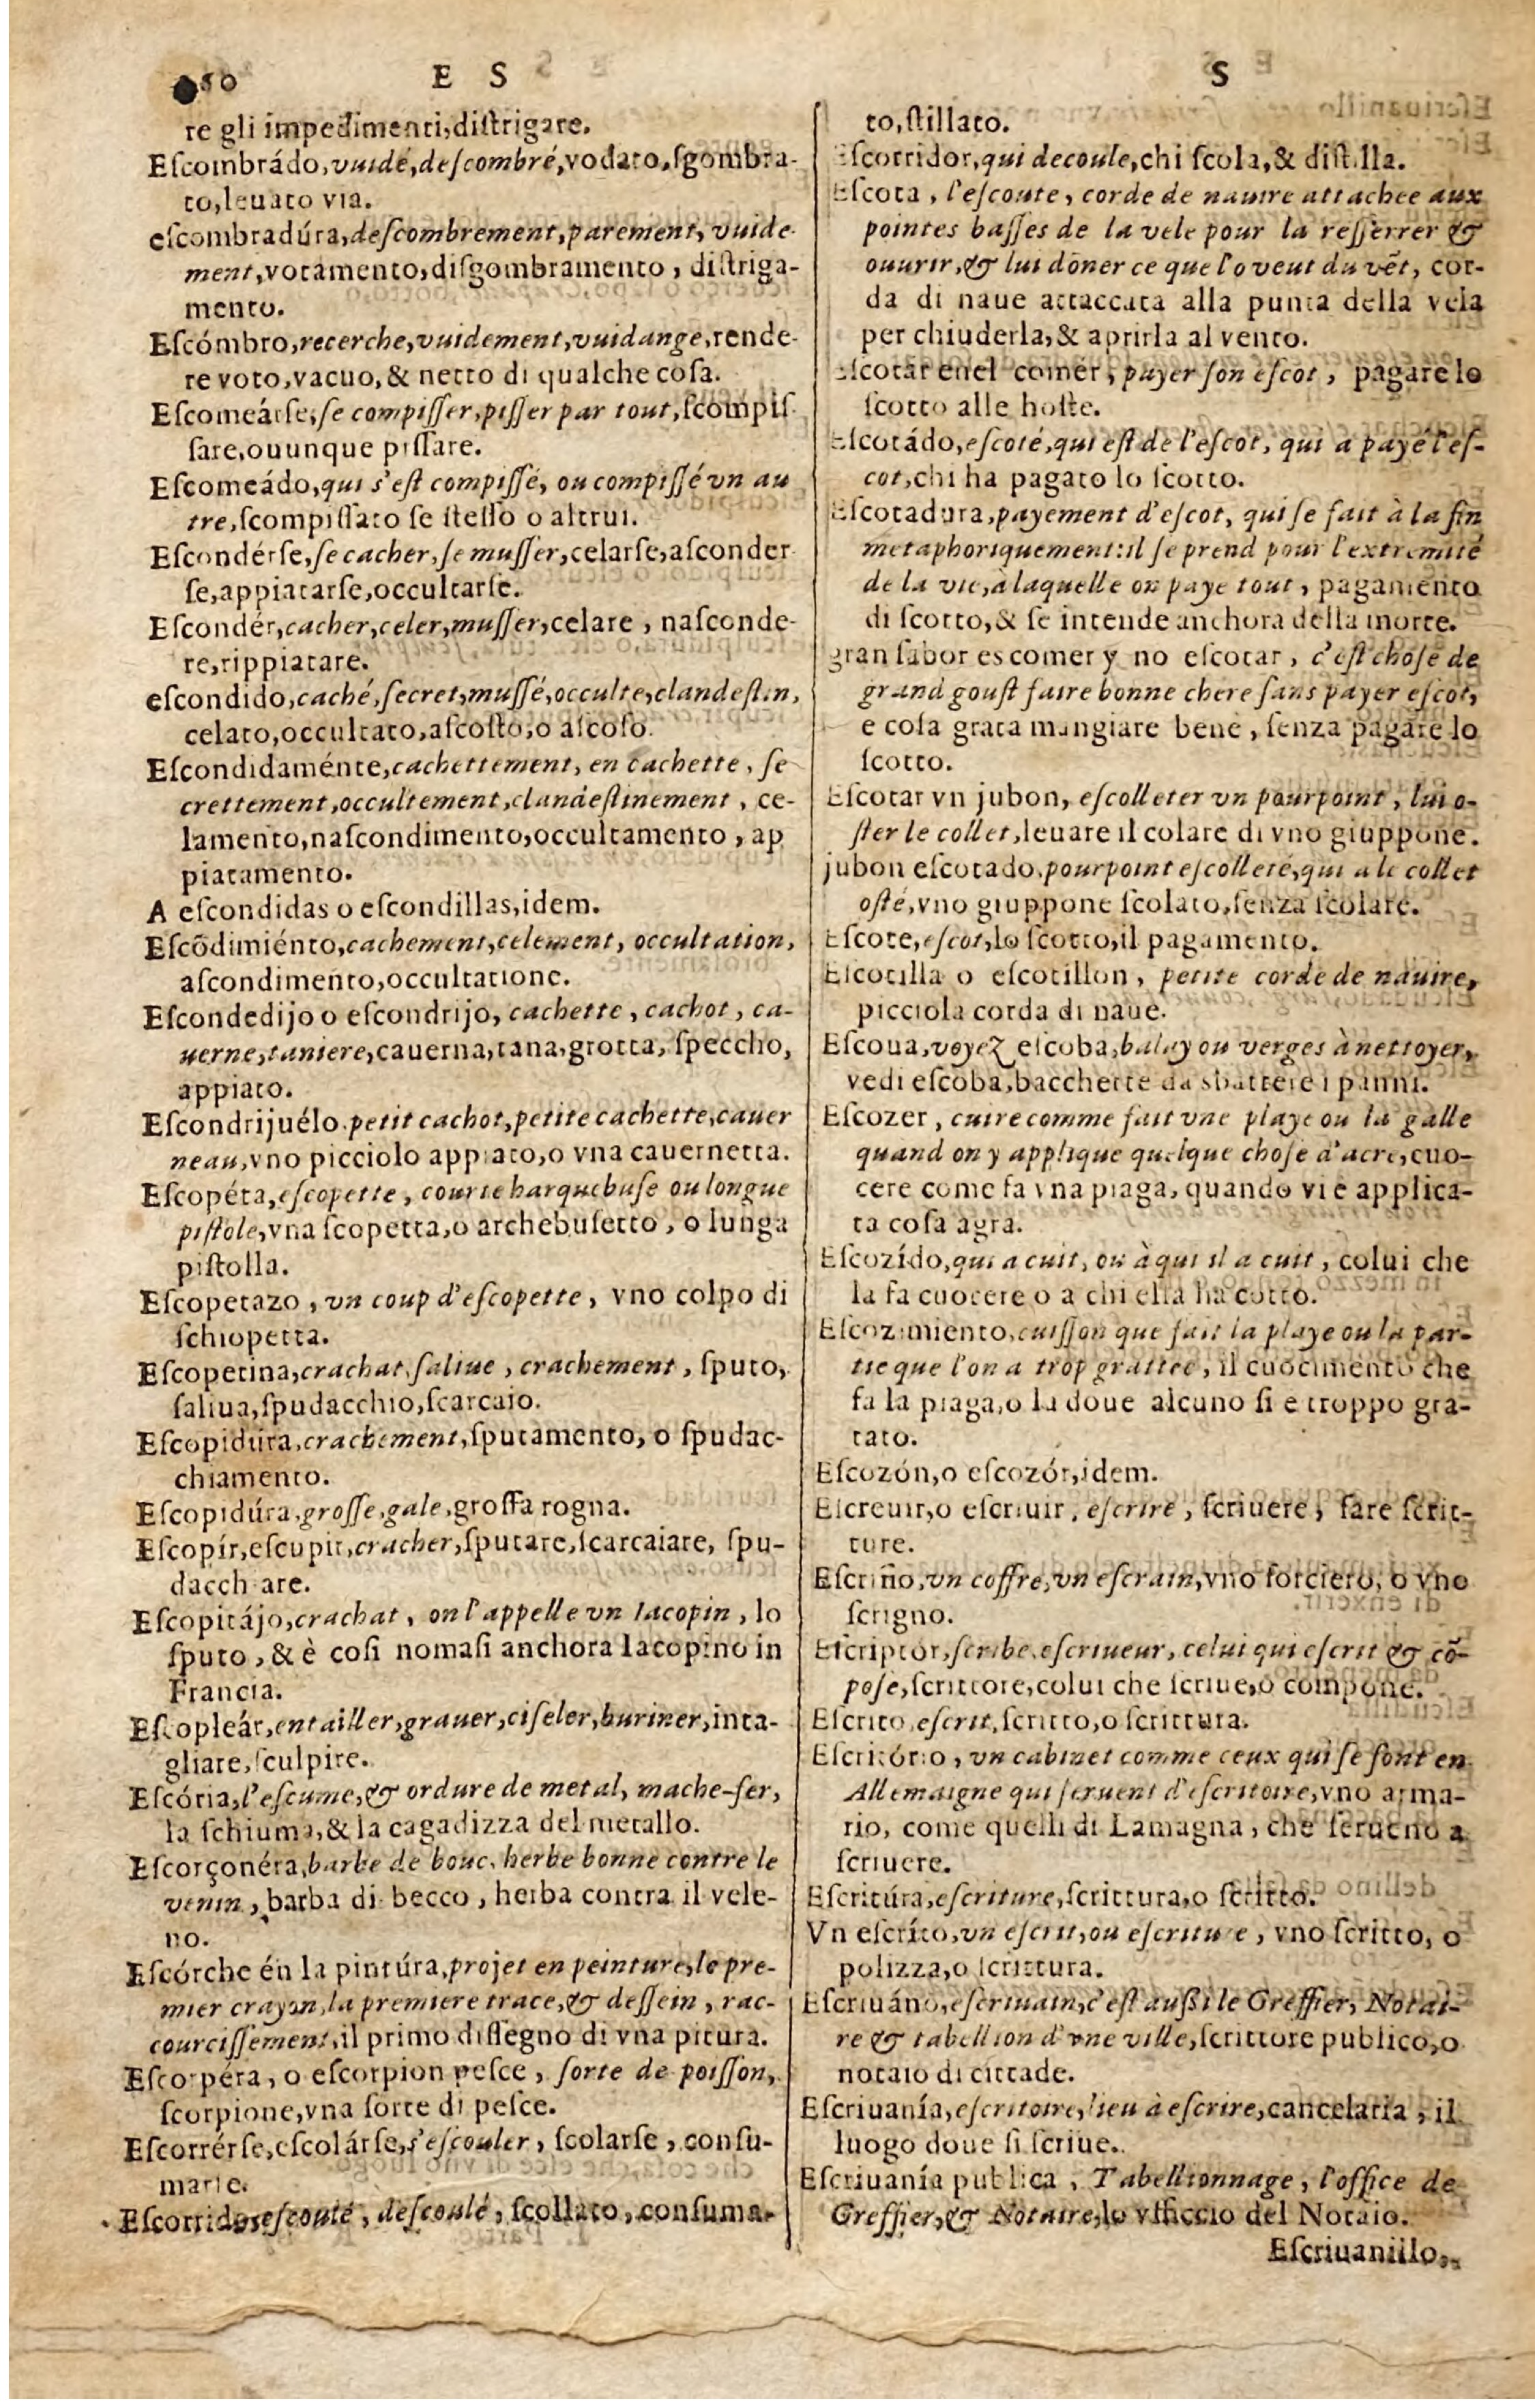 50
E S
S
re gli impedimenti,diſtrigare.
Eſcombrádo,vuidé,deſcombré,vodato,ſgombra-
to,leuato via.
eſcombradúra,deſcombrement,parement, vuide-
ment,votamento,diſgombramento, diſtriga-
mento.
Eſcómbro,recerche,vuidement,vuidange,rende-
re voto,vacuo,& netto di qualche coſa.
Eſcomeárſe,ſe compiſſer,piſſer par tout,ſcompiſ-
ſare,ouunque piſſare.
Eſcomeádo,qui s'eſt compiſſé, ou compiſſé vn au
tre,ſcompiſſato ſe ſteſſo o altrui.
Eſcondérſe,ſe cacher,ſe muſſer,celarſe,aſconder
ſe,appiatarſe,occultarſe.
Eſcondér,cacher,celer,muſſer,celare, naſconde-
re,rippiatare.
eſcondido,caché,ſecret,muſſé,occulte,clandeſtin,
celato,occultato,aſcoſto,o aſcoſo.
Eſcondidaménte,cachettement, en cachette, ſe
crettement,occultement,clandeſtinement, ce-
lamento,naſcondimento,occultamento, ap
piatamento.
A eſcondidas o eſcondillas,idem.
Eſcõdimiénto,cachement,celement, occultation,
aſcondimento,occultatione.
Eſcondedijo o eſcondrijo, cachette, cachot, ca-
uerne,taniere,cauerna,tana,grotta, ſpeccho,
appiato.
Eſcondrijuélo.petit cachot,petite cachette,cauer
neau,vno picciolo appiato,o vna cauernetta.
Eſcopéta,eſcopette, courte harquebuſe ou longue
piſtole,vna ſcopetta,o archebuſetto, o lunga
piſtolla.
Eſcopetazo, vn coup d'eſcopette, vno colpo di
ſchiopetta.
Eſcopetina,crachat,ſaliue, crachement, ſputo,
ſaliua,ſpudacchio,ſcarcaio.
Eſcopidúra,crachement,ſputamento, o ſpudac-
chiamento.
Eſcopidúra,groſſe,gale,groſſa rogna.
Eſcopír,eſcupir,cracher,ſputare,ſcarcaiare, ſpu-
dacchiare.
Eſcopitájo,crachat, on l'appelle vn Iacopin, lo
ſputo, & è coſi nomaſi anchora Iacopino in
Francia.
Eſcopleár,entailler,grauer,ciſeler,buriner,inta-
gliare,ſculpire.
Eſcória,l'eſcume,& ordure de metal, mache-fer,
la ſchiuma,& la cagadizza del metallo.
Eſcorçonéra,barbe de bouc, herbe bonne contre le
venin, barba di becco, herba contra il vele-
no.
Eſcórche én la pintúra,projet en peinture,le pre-
mier crayon,la premiere trace,& deſſein, rac-
courciſſement,il primo diſſegno di vna pitura.
Eſcorpéra, o eſcorpion peſce, ſorte de poiſſon,
ſcorpione,vna ſorte di peſce.
Eſcorrérſe,eſcolárſe,s'eſcouler, ſcolarſe, conſu-
marſe.
Eſcorrido,eſcoulé, deſcoulé, ſcollato, conſuma-
to,ſtillato.
Eſcorridor,qui decoule,chi ſcola,& diſtilla.
Eſcota, l'eſcoute, corde de nauire attachee aux
pointes baſſes de la vele pour la reſſerrer &
ouurir,& lui dõner ce que l'o veut du vẽt, cor-
da di naue attaccata alla punta della vela
per chiuderla,& aprirla al vento.
Eſcotar enel comer, payer ſon eſcot, pagare lo
ſcotto alle hoſte.
Eſcotádo,eſcoté,qui eſt de l'eſcot, qui a payé l'eſ-
cot,chi ha pagato lo ſcotto.
Eſcotadura,payement d'eſcot, qui ſe fait à la fin
metaphoriquement:il ſe prend pour l'extremité
de la vie,a laquelle on paye tout, pagamento
di ſcotto,& ſe intende anchora della morte.
gran ſabor es comer y no eſcotar, c'eſt choſe de
grand gouſt faire bonne chere ſans payer eſcot,
e coſa grata mangiare bene, ſenza pagare lo
ſcotto.
Eſcotar vn jubon, eſcolleter vn pourpoint, lui o-
ſter le collet,leuare il colare di vno giuppone.
jubon eſcotado,pourpoint eſcolleté,qui a le collet
oſté,vno giuppone ſcolato,ſenza ſcolare.
Eſcote,eſcot,lo ſcotto,il pagamento.
Eſcotilla o eſcotillon, petite corde de nauire,
picciola corda di naue.
Eſcoua,voyez eſcoba,balay ou verges à nettoyer,
vedi eſcoba,bacchette da sbattere i panni.
Eſcozer, cuire comme fait vne playe ou la galle
quand on y applique quelque choſe d'acre,cuo-
cere come fa vna piaga, quando vi è applica-
ta coſa agra.
Eſcozído,qui a cuit, ou à qui il a cuit, colui che
la fa cuocere o a chi ella ha cotto.
Eſcozimiento,cuiſſon que fait la playe ou la par-
tie que l'on a trop grattee, il cuocimento che
fa la piaga,o la doue alcuno ſi e troppo gra-
tato.
Eſcozón,o eſcozór,idem.
Eſcreuir,o eſcriuir, eſcrire, ſcriuere, fare ſcrit-
ture.
Eſcriño,vn coffre,vn eſcrain,vno forciero, o vno
ſcrigno.
Eſcriptór,ſcribe,eſcriueur, celui qui eſcrit & cõ-
poſe,ſcrittore,colui che ſcriue,o compone.
Eſcrito,eſcrit,ſcritto,o ſcrittura.
Eſcritório, vn cabinet comme ceux qui ſe font en
Allemaigne qui ſeruent d'eſcritoire,vno arma-
rio, come quelli di Lamagna, che ſerueno a
ſcriuere.
Eſcritúra,eſcriture,ſcrittura,o ſcritto.
Vn eſcríto,vn eſcrit,ou eſcriture, vno ſcritto, o
polizza,o ſcrittura.
Eſcriuáno,eſcriuain,c'eſt auſsi le Greffier, Notai-
re & tabellion d'vne ville,ſcrittore publico,o
notaio di cittade.
Eſcriuanía,eſcritoire,lieu à eſcrire,cancelaria, il
luogo doue ſi ſcriue.
Eſcriuanía publica, Tabellionnage, l'office de
Greffier,& Notaire,lo vfficcio del Notaio.
Eſcriuanillo,